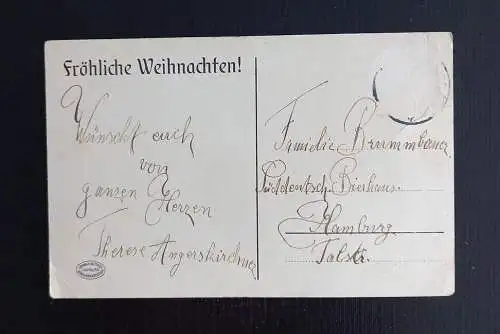 Fröhliche Weihnachten!
Wünscht euch
von
ganzen Herzen
Therese Angerskirchner
Familie Brummbauer
Süddeutsch. Bierhaus.
Hamburg
Talstr.